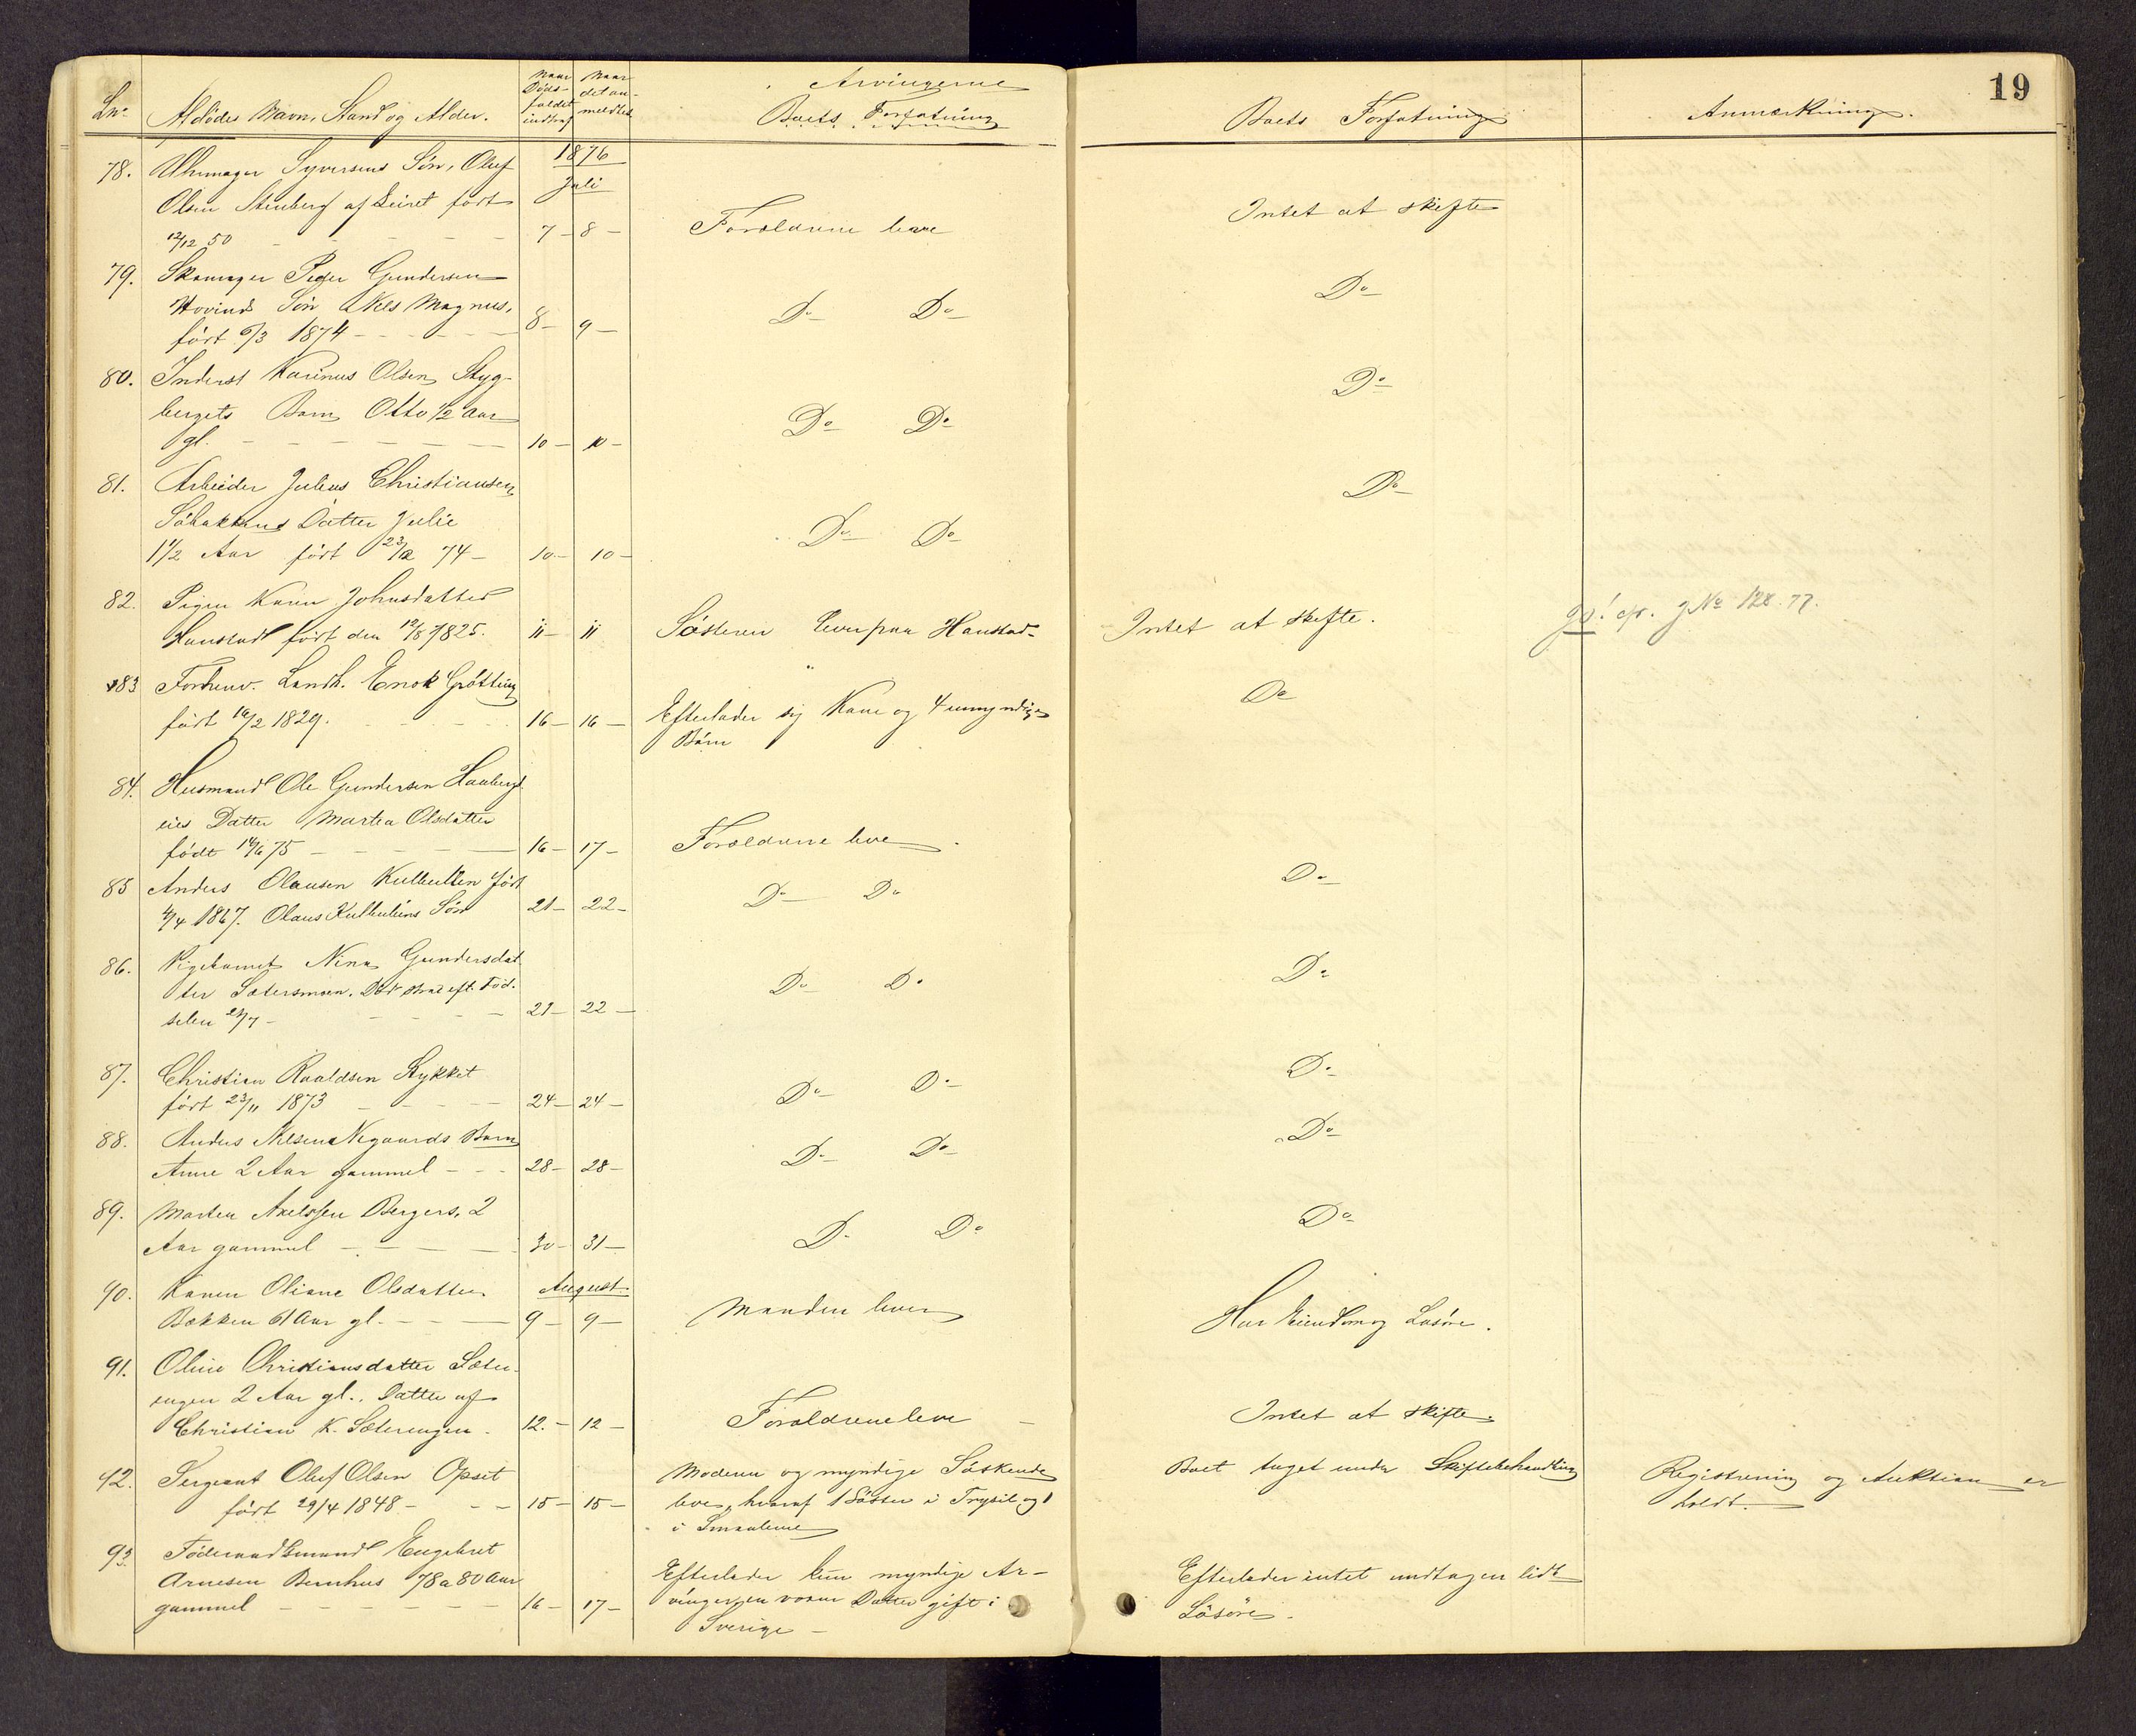 19
Lnº
Afdødes Navn, Stand og Alder.
Naar Døds-faldet indtraf
Naar det an-meldtes
Arvingerne
Boets Forfatning
Boets Forfatning
Anmærkning.
1876
Juli
78. Uhrmager Syversens Søn, Oluf
Olsen Stenberg af Leiret født
12/12 50 - 7 - 8 - Forældrene leve Intet at skifte
79. Skomager Peder Gundersen
Hovinds Søn Nils Magnus,
født 6/3 1874 - 8 - 9 - Dº Dº Dº
80. Inderst Karinus Olsen Styg-
bergets Barn Otto 1/2 Aar
gl. - 10 - 10 - Dº Dº Dº
81. Arbeider Julius Christiansen
Søbakkens Datter Julie
1 1/2 Aar født 23/12 74 - 10 - 10 - Dº Dº Dº
82. Pigen Karen Johnsdatter
Hanstad født den 12/8 1825. 11 - 11 Søsteren lever paa Hanstad - Intet at skifte. Jo! cfr. J Nº 128.77.
83 Forhenv. Landh. Enok Grøtting
født 16/2 1829. 16 - 16 - Efterlader sig Kone og 4 umyndige Dº
Børn
84. Husmand Ole Gundersen Haaberg
eies Datter Martea Olsdatter
født 14/6 75 - 16 - 17 - Forældrene leve.
85 Anders Olausen Kulbulien født
4/4 1867. Olaus Kulbuliens Søn 21 - 22 - Dº Dº Dº
86. Pigebarnet Nina Gundersdat
ter Sætersmoen. Død strax eft. Fød-
selen 21/7 - 21 - 22 - Dº Dº Dº
87. Christian Roaldsen Stykket
født 23/11 1873 - 24 - 24 - Dº Dº Dº
88. Anders Nilsen Nygaards Barn
Anne 2 Aar gammel - 28 - 28 - Dº Dº Dº
89. Morten Axelssen Bergers, 2
Aar gammel - 30 - 31 - Dº Dº Dº
August
90. Karen Oliane Olsdatter
Bakken 61 Aar gl. - 9 - 9 - Manden lever Har Eiendom og Løsøre.
91. Oline Christiansdatter Sæter-
engen 2 Aar gl., Datter af
Christian K. Sæterengen. 12. - 12 - Forældrene leve - Intet at skifte.
92. Sergeant Oluf Olsen Opset
født 29/4 1848 - 15 - 15 -
Moderen og myndige Søskende
leve, hvoraf 1 Søster i Trysil og 1
i Smaalene
Boet taget under Skiftebehandling
Registrering og Auktion er
holdt.
93. Føderaadsmand Engebret
Arnesen Bernhus 78 a 80 Aar
gammel - 16 - 17 -
Efterlader kun myndige Ar-
vinger, en voxen Datter gift i
Sverige -
Efterlader intet undtagen lidt
Løsøre.